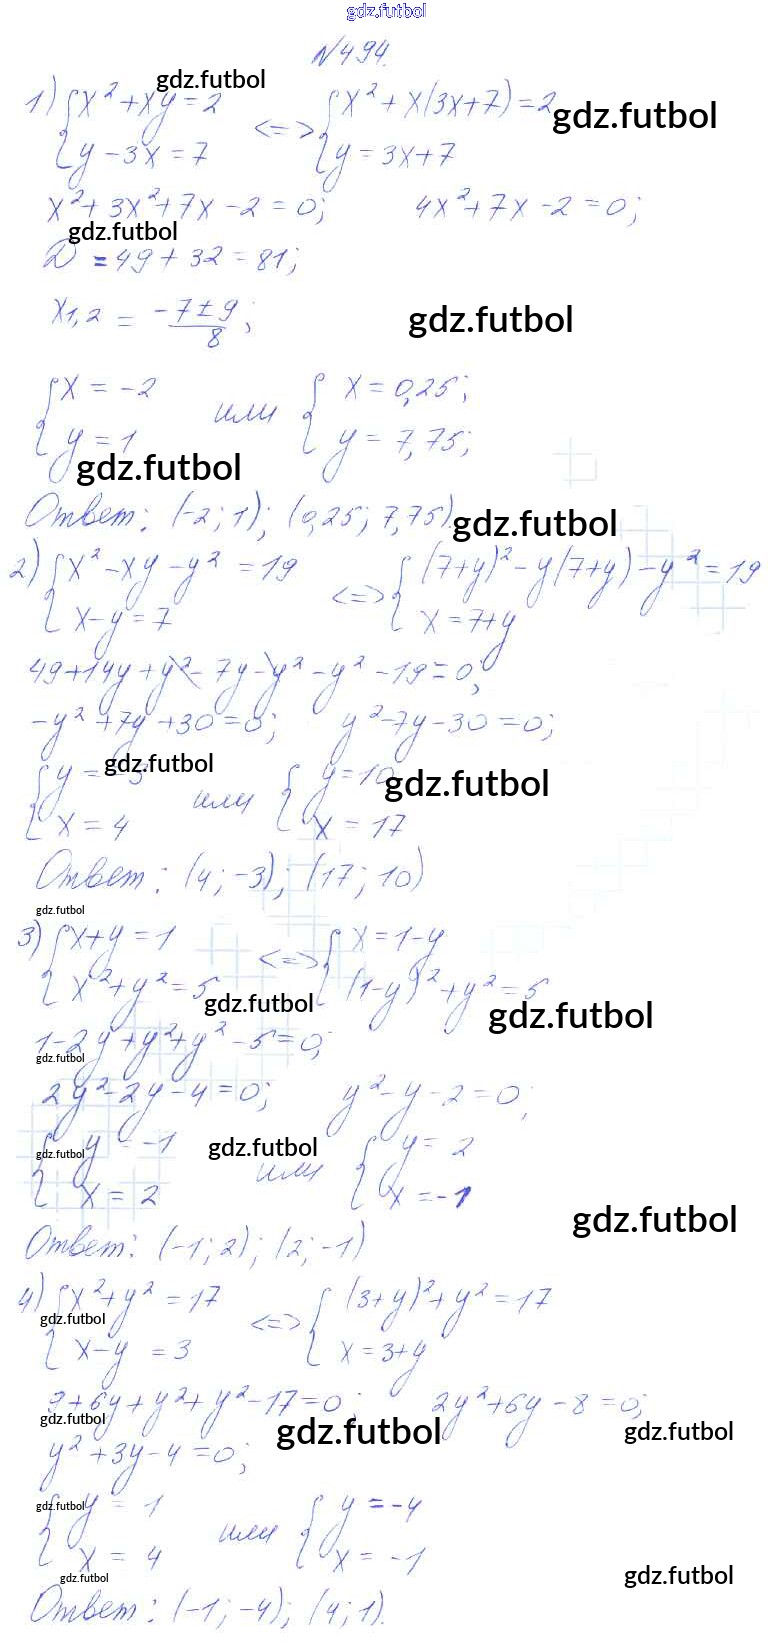 gdz.futbol
№494.
gdz.futbol
1) {x² + xy = 2 <=> {x² + x(3x+7) = 2
gdz.futbol
{y - 3x = 7 {y = 3x+7
x² + 3x² + 7x - 2 = 0; 4x² + 7x - 2 = 0;
gdz.futbol
D = 49 + 32 = 81;
x1,2 = (-7 ± 9)/8;
gdz.futbol
{x = -2 или {x = 0,25;
{y = 1 {y = 7,75;
gdz.futbol
Ответ: (-2; 1); (0,25; 7,75)
gdz.futbol
2) {x² - xy - y² = 19 <=> {(7+y)² - y(7+y) - y² = 19
{x - y = 7 {x = 7+y
49 + 14y + y² - 7y - y² - y² - 19 = 0;
-y² + 7y + 30 = 0; y² - 7y - 30 = 0;
gdz.futbol
{y = -3 или {y = 10
gdz.futbol
{x = 4 {x = 17
Ответ: (4; -3); (17; 10)
gdz.futbol
3) {x + y = 1 <=> {x = 1-y
{x² + y² = 5 {(1-y)² + y² = 5
gdz.futbol
gdz.futbol
1 - 2y + y² + y² - 5 = 0;
gdz.futbol
2y² - 2y - 4 = 0; y² - y - 2 = 0;
{y = -1 или {y = 2
gdz.futbol
gdz.futbol
{x = 2 {x = -1
gdz.futbol
Ответ: (-1; 2); (2; -1)
4) {x² + y² = 17 <=> {(3+y)² + y² = 17
gdz.futbol
{x - y = 3 {x = 3+y
9 + 6y + y² + y² - 17 = 0; 2y² + 6y - 8 = 0;
gdz.futbol
gdz.futbol
gdz.futbol
y² + 3y - 4 = 0;
gdz.futbol
{y = 1 или {y = -4
{x = 4 {x = -1
gdz.futbol
gdz.futbol
Ответ: (-1; -4); (4; 1).